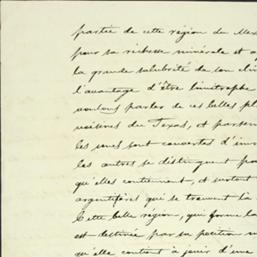 partie de cette région du Mex
pour sa richesse minérale et a
la grande salubrité de son cli
l'avantage d'être limitrophe
voulons parler de ces belles pl
voisines du Texas, et parsem
les unes sont couvertes d'imm
les autres se distinguent par
qu'elles contiennent, et surtout
argentifères qui se trouvent là
Cette belle région, qui forme la
est destinée par sa position na
qu'elle contient à jouir d'une